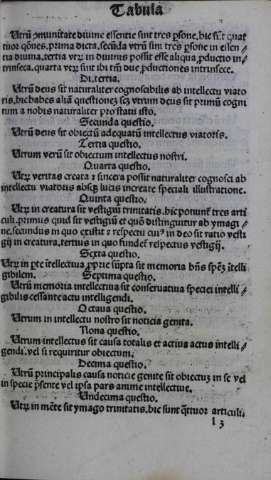 Tabula
Utrū ꝯmunitate diuine essentie sint tres ꝑsone, hic sūt quat
tuor qōnes, prima dicta, secūda utrū sint tres ꝑsone in essen
tia diuina, tertia utrū in diuinis possit esse aliqua ꝓductio in
trinseca, quarta utrū sint ibi tm̄ due ꝓductiones intrinsece.
Di. tertia.
Utrū deus sit naturaliter cognoscibilis ab intellectu viato
ris, hic habes aliā questionē scꝫ utrum deus sit primū cogni
tum a nobis naturaliter pro statu isto.
Secunda questio.
Utrū deus sit obiectū adequatū intellectus viatoris.
Tertia questio.
Utrum verum sit obiectum intellectus nostri.
Quarta questio.
Utꝝ veritas creata ⁊ sincera possit naturaliter cognosci ab
intellectu viatoris absqꝫ lucis increate speciali illustratione.
Quinta questio.
Utꝝ in creatura sit vestigiū trinitatis, hic ponunť tres arti
culi, primus quid sit vestigiū et quō distinguitur ab ymagi
ne, secundus in quo existit ⁊ respectu cuiꝰ in deo sit ratio vesti
gij in creatura, tertius in quo fundeť respectus vestigij.
Sexta questio.
Utꝝ in pte ītellectiua ꝓprie sūpta sit memoria hn̄s spēꝫ ītelli
gibilem.
Septima questio.
Utrū memoria intellectiua sit conseruatiua speciei intelli
gibilis cessante actu intelligendi.
Octaua questio.
Utrum in intellectu nostro sit noticia genita.
Nona questio.
Utrum intellectus sit causa totalis et actiua actus intelli
gendi, vel si requiritur obiectum.
Decima questio.
Utrū principalis causa noticie genite sit obiectuꝫ in se vel
in specie p̄sente vel ipsa pars anime intellectiue.
Undecima questio.
Utꝝ in mēte sit ymago trinitatis, hic sunt q̄ttuor articuli,
l 3